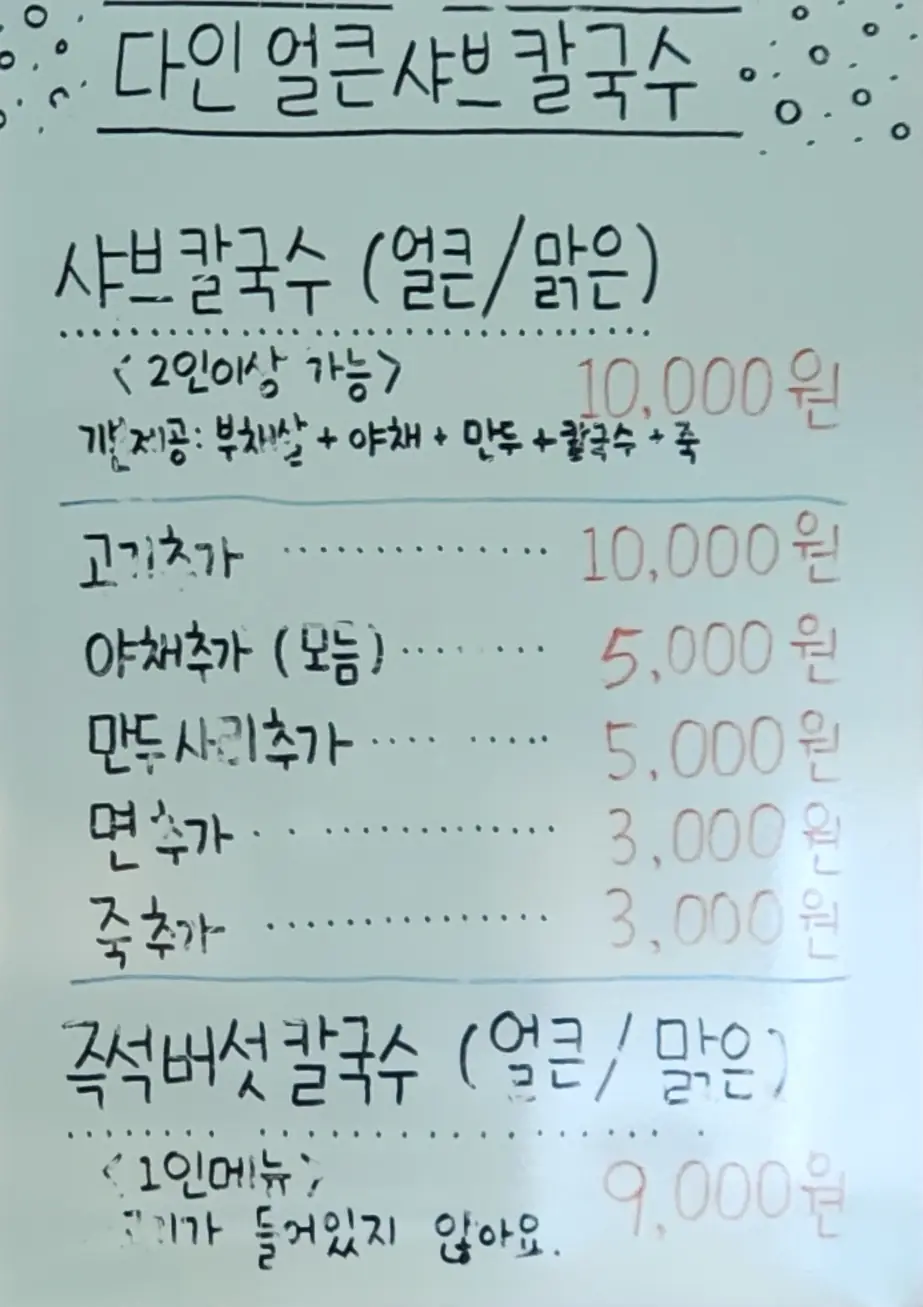 다인 얼큰샤브칼국수
샤브칼국수 (얼큰/맑은)
<2인이상 가능> 10,000원
기본제공: 부채살 + 야채 + 만두 + 칼국수 + 죽
고기추가 .............. 10,000원
야채추가 (모듬) ........ 5,000원
만두사리추가 ......... 5,000원
면추가 .............. 3,000원
죽추가 ............... 3,000원
즉석버섯칼국수 (얼큰/맑은)
<1인메뉴> 9,000원
고기가 들어있지 않아요.